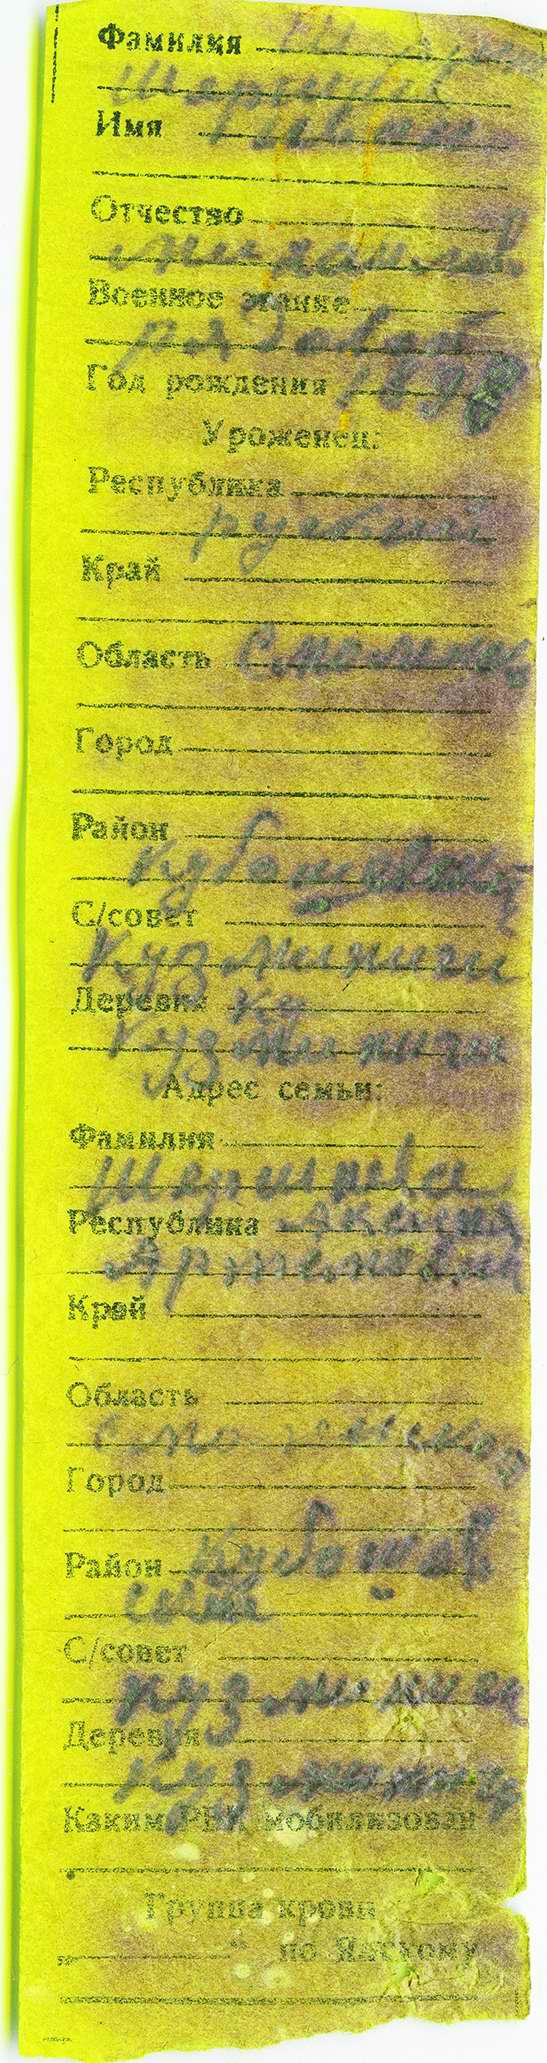 Фамилия
Имя Иван
Отчество
михайлов
Военное звание
рядовой
Год рождения 1898
Уроженец:
Республика
руский
Край
Область Смоленск
Город
Район
Кубашевский
С/совет
Кузминичи
Деревня Ку
Кузминичи
Адрес семьи:
Фамилия
Республика
Край
Область
Город
Район Кубашов
ский
С/совет
Кузминичи
Деревня
Кузминичи
Каким РВК мобилизован
Группа крови
„ “ по Янскому